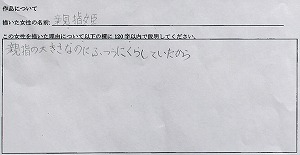 作品について
描いた女性の名前: 親指姫
この女性を描いた理由について以下の欄に120字以内で説明してください。
親指の大きさなのにふつうにくらしていたから